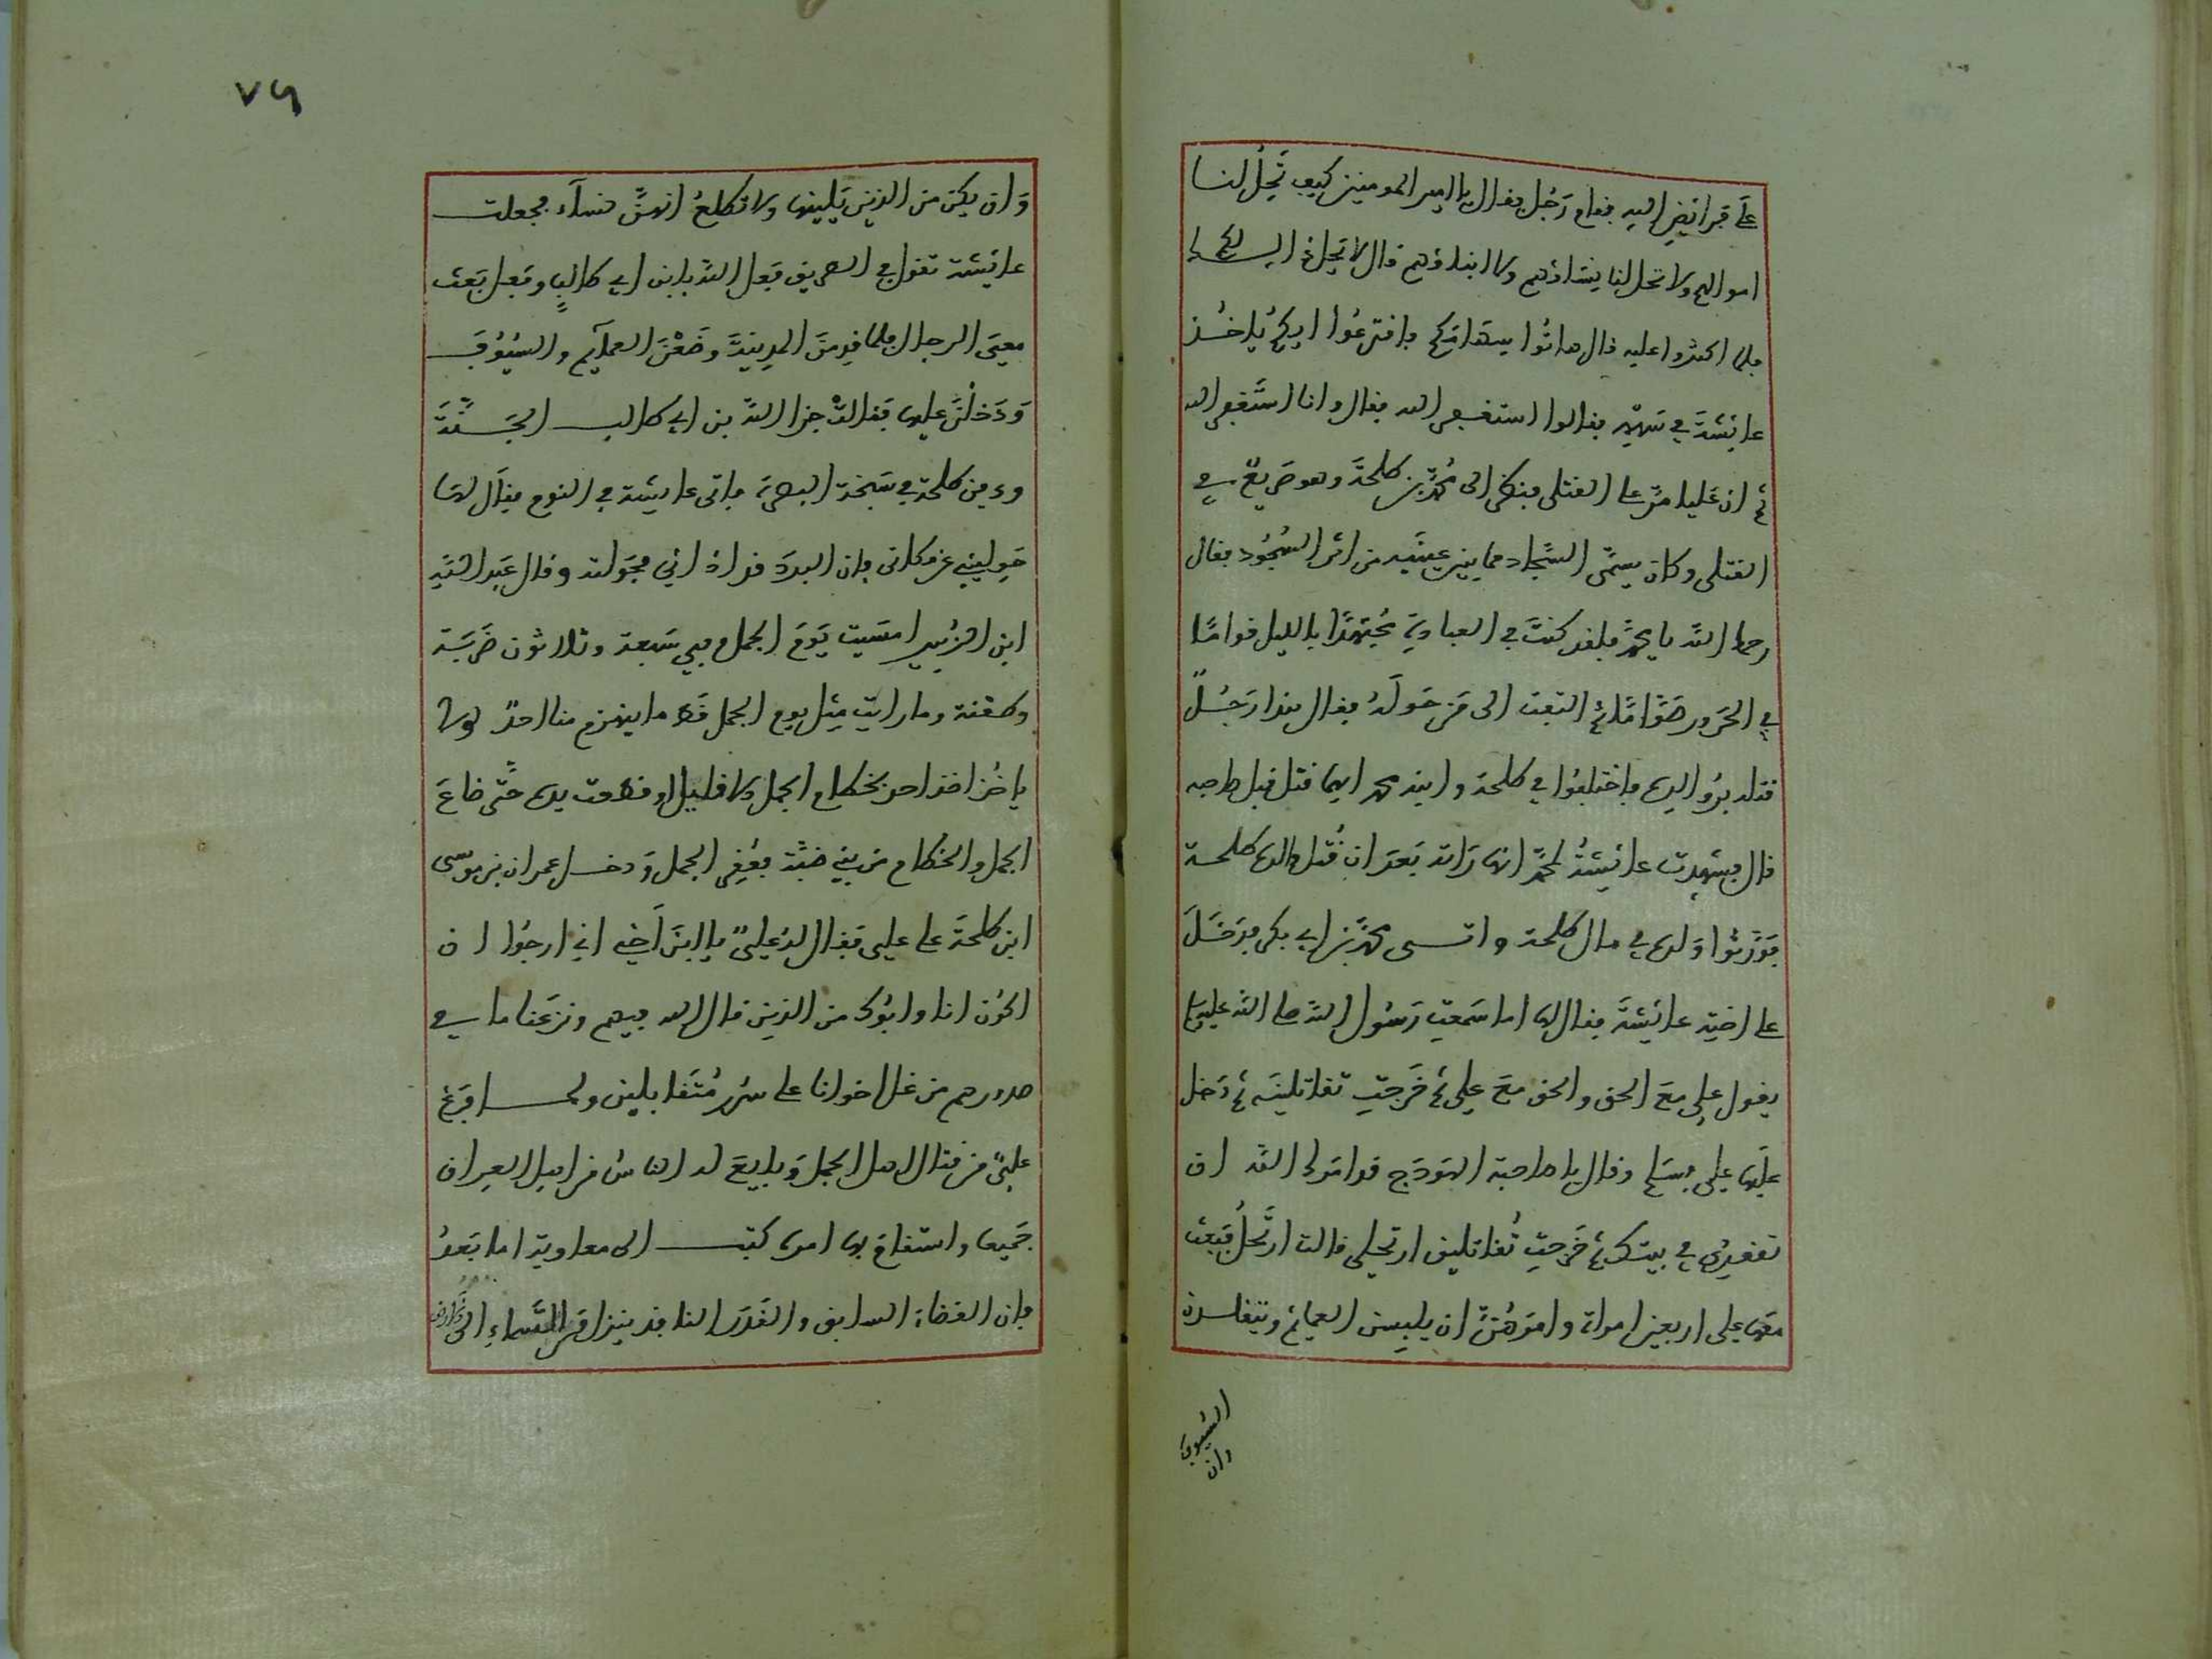 على فرائض الله فقام رجل فقال يا امير المومنين كيف تحل لنا
اموالهم ولا تحل لنا نساؤهم ولا ابناؤهم قال لا يحل ذلك لكم
فلما اكثروا عليه قال هاتوا سهامكم فاقترعوا ايكم ياخذ
عائشة في سهمه فقالوا استغفر الله فقال وانا استغفر الله
ثم ان عليا مر على القتلى فنظر الى محمد بن طلحة وهو صريع في
القتلى وكان يسمى السجاد مما بين عينيه من اثر السجود فقال
رحمك الله يا محمد فلقد كنت في العبادة مجتهدا بالليل قواما
في الحرور صواما ثم التفت الى من حوله فقال هذا رجل
قتله بر والده فاختلفوا في طلحة وابنه محمد ايهما قتل قبل صاحبه
قال فشهدت عائشة لمحمد انها راته بعد ان قتل والده طلحة
فورثوا ولده في مال طلحة واتى محمد بن ابي بكر فدخل
على اخته عائشة فقال لها اما سمعت رسول الله صلى الله عليه
يقول علي مع الحق والحق مع علي ثم خرجت تقاتلينه ثم دخل
عليها علي فسلم وقال يا صاحبة الهودج قد امرك الله ان
تقعدي في بيتك ثم خرجت تقاتلين ارتحلي قالت ارتحل فبعث
معها علي اربعين امراة وامرهن ان يلبسن العمائم ويتقلدن
السيوف
وان
٧٩
وان يكن من الذين يلينها ولا تطلع انهن نساء فجعلت
عائشة تقول في الطريق فعل الله بابن ابي طالب وفعل بعث
معي الرجال فلما قدمن المدينة وضعن العمائم والسيوف
ودخلن عليها فقالت جزا الله بن ابي طالب الجنة
ودفن طلحة في سبخة البصرة فاتى عائشة في النوم فقال لها
حوليني عن مكاني فان البرد قد اذاني فحولته وقال عبد الله
ابن الزبير امسيت يوم الجمل وبي سبعة وثلاثون ضربة
وطعنة وما رايت مثل يوم الجمل قط ما ينهزم منا احد ولا
ياخذ احد بخطام الجمل الا قتل او قطعت يده حتى ضاع
الجمل والخطام من بني ضبة فعقر الجمل ودخل عمران بن موسى
ابن طلحة على علي فقال له علي يا ابن اخي اني ارجوا ان
اكون انا وابوك من الذين قال الله فيهم ونزعنا ما في
صدورهم من غل اخوانا على سرر متقابلين ولما فرغ
علي من قتال اهل الجمل وبايع له الناس من اهل العراق
جميعا واستقام بها امره كتب الى معاوية اما بعد
فان القضاء السابق والقدر النافذ ينزل من السماء الى الارض